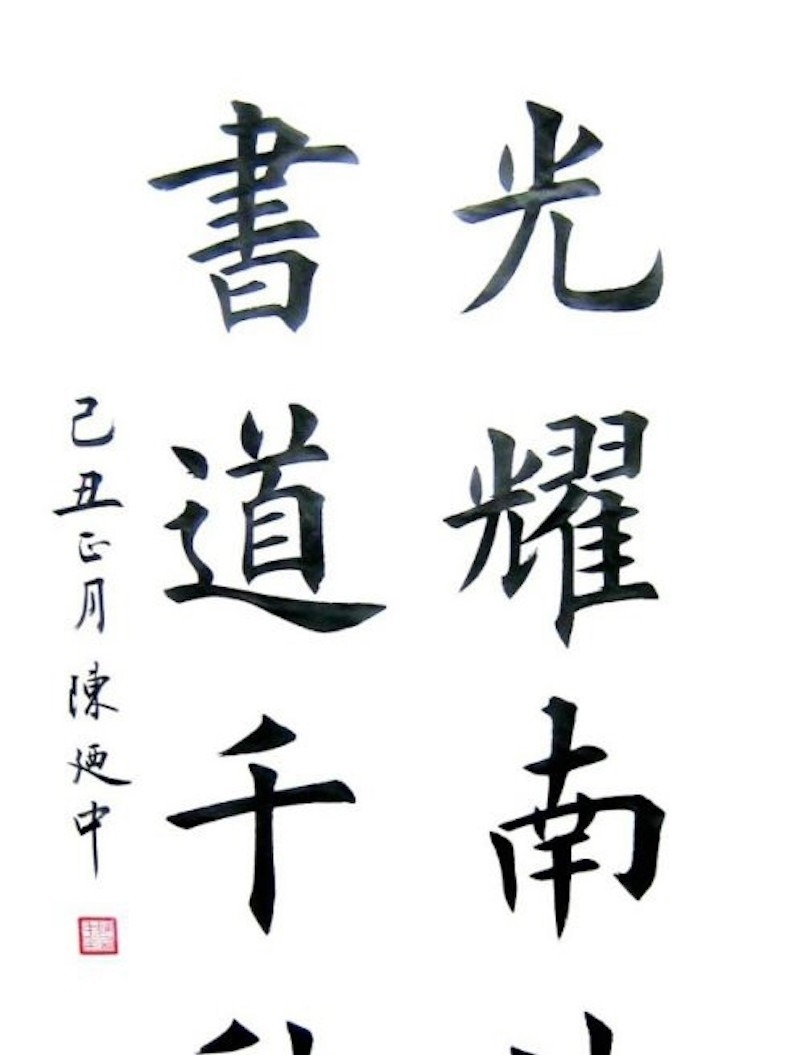 光耀南
書道千
己丑正月 陳廼中